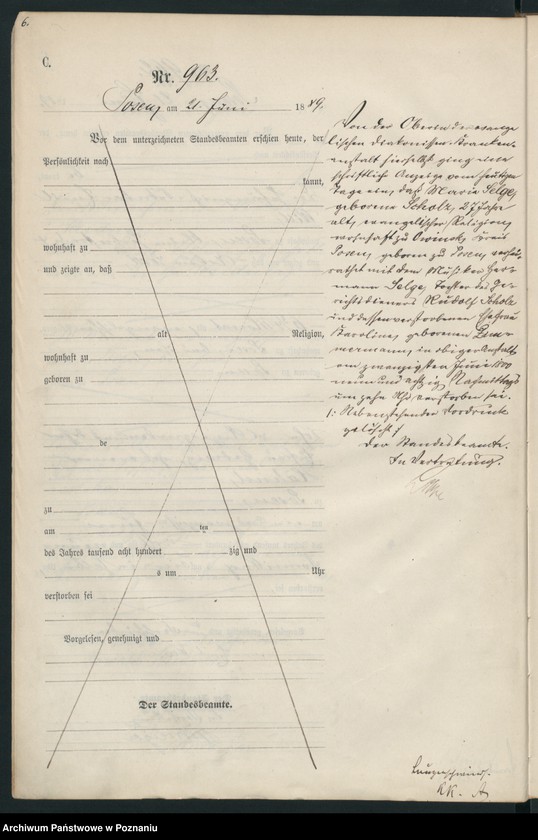 6.
C.
Nr. 963.
Posen, am 21. Juni 1889.
Vor dem unterzeichneten Standesbeamten erschien heute, der
Persönlichkeit nach
kannt,
wohnhaft zu
und zeigte an, daß
alt, Religion,
wohnhaft zu
geboren zu
de
zu
am ten
des Jahres tausend acht hundert zig und
s um Uhr
verstorben sei
Vorgelesen, genehmigt und
Der Standesbeamte.
Von der Oberin der evange
lischen Diakonissen-Kranken-
anstalt hierselbst ging eine
schriftliche Anzeige vom heutigen
Tage ein, daß Maria Selge,
geborene Scholz, 27 Jahre
alt, evangelischer Religion,
wohnhaft zu Owinsk, Kreis
Posen, geboren zu Posen, verhei-
rathet mit dem Musiker Her-
mann Selge, Tochter des Ge-
richtsdieners Rudolf Scholz
und dessen verstorbenen Ehefrau
Karoline, geborenen Zim-
mermann, in obiger Anstalt
am zwanzigsten Juni 1800
neun und achtzig Nachmittags
um zehn Uhr verstorben sei.
/: Nebenstehender Vordruck
gelöscht :/
Der Standesbeamte.
In Vertretung.
Archiwum Państwowe w Poznaniu